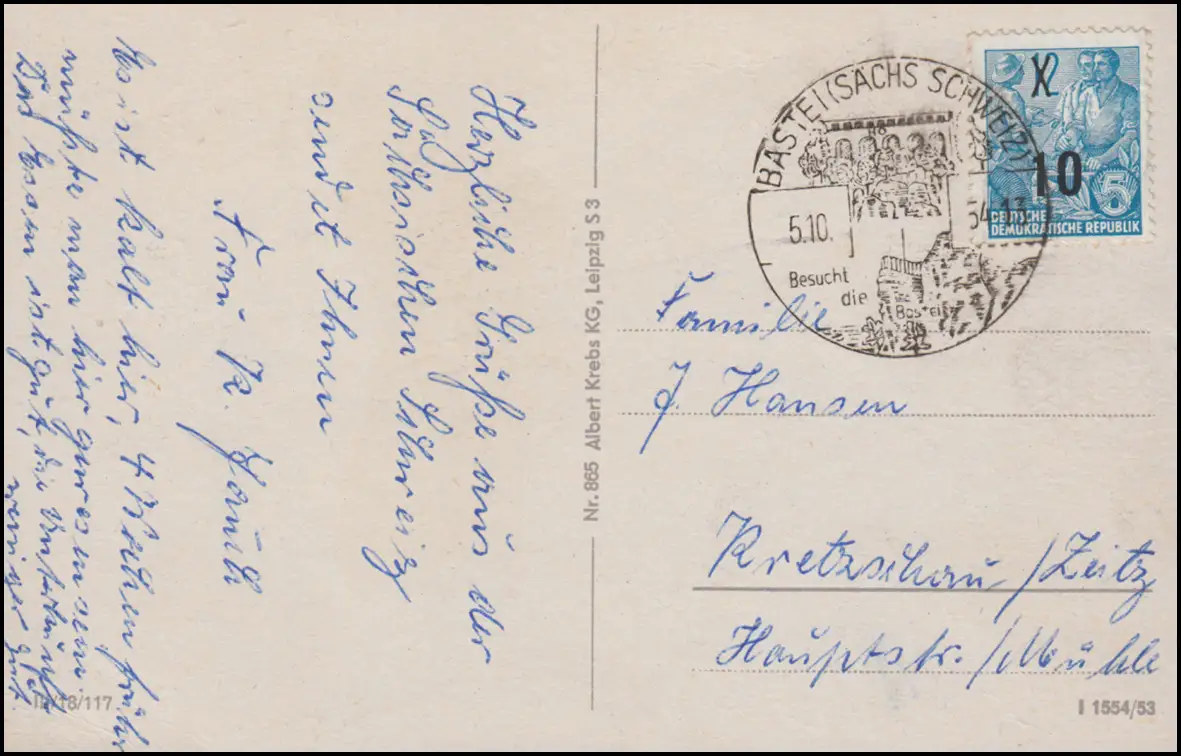 Herzliche Grüße aus der
Sächsischen Schweiz
sendet Ihnen
Frau K.
Es ist kalt hier, 4 Wochen früher
müßte man hier gewesen sein.
Das Essen ist gut, die Unterkunft
weniger gut
III/18/117
Nr. 865 Albert Krebs KG, Leipzig S 3
BASTEI (SÄCHS SCHWEIZ)
5.10. 54
HO
Besucht
die
Bastei
10
5
DEUTSCHE
DEMOKRATISCHE REPUBLIK
Familie
J. Hansen
Kretzschau/Zeitz
Hauptstr./Mühle
I 1554/53